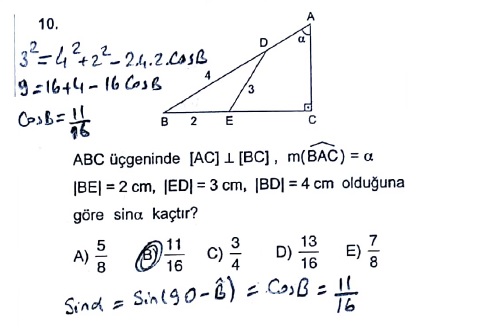 10.
3² = 4² + 2² - 2.4.2.CosB
9 = 16 + 4 - 16 CosB
CosB = 11/16
A
α
D
4
3
B 2 E C
ABC üçgeninde [AC] ⊥ [BC] , m(BAC) = α
|BE| = 2 cm, |ED| = 3 cm, |BD| = 4 cm olduğuna
göre sinα kaçtır?
A) 5/8 B) 11/16 C) 3/4 D) 13/16 E) 7/8
Sinα = Sin(90 - B̂) = CosB = 11/16